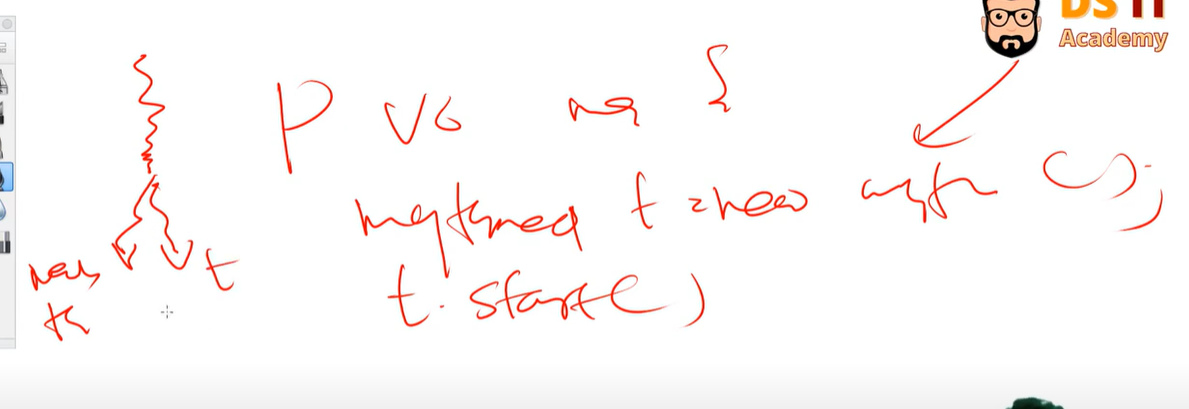 DS IT
Academy
P V S ma {
mythread t = new myth ();
t. start()
main t
th